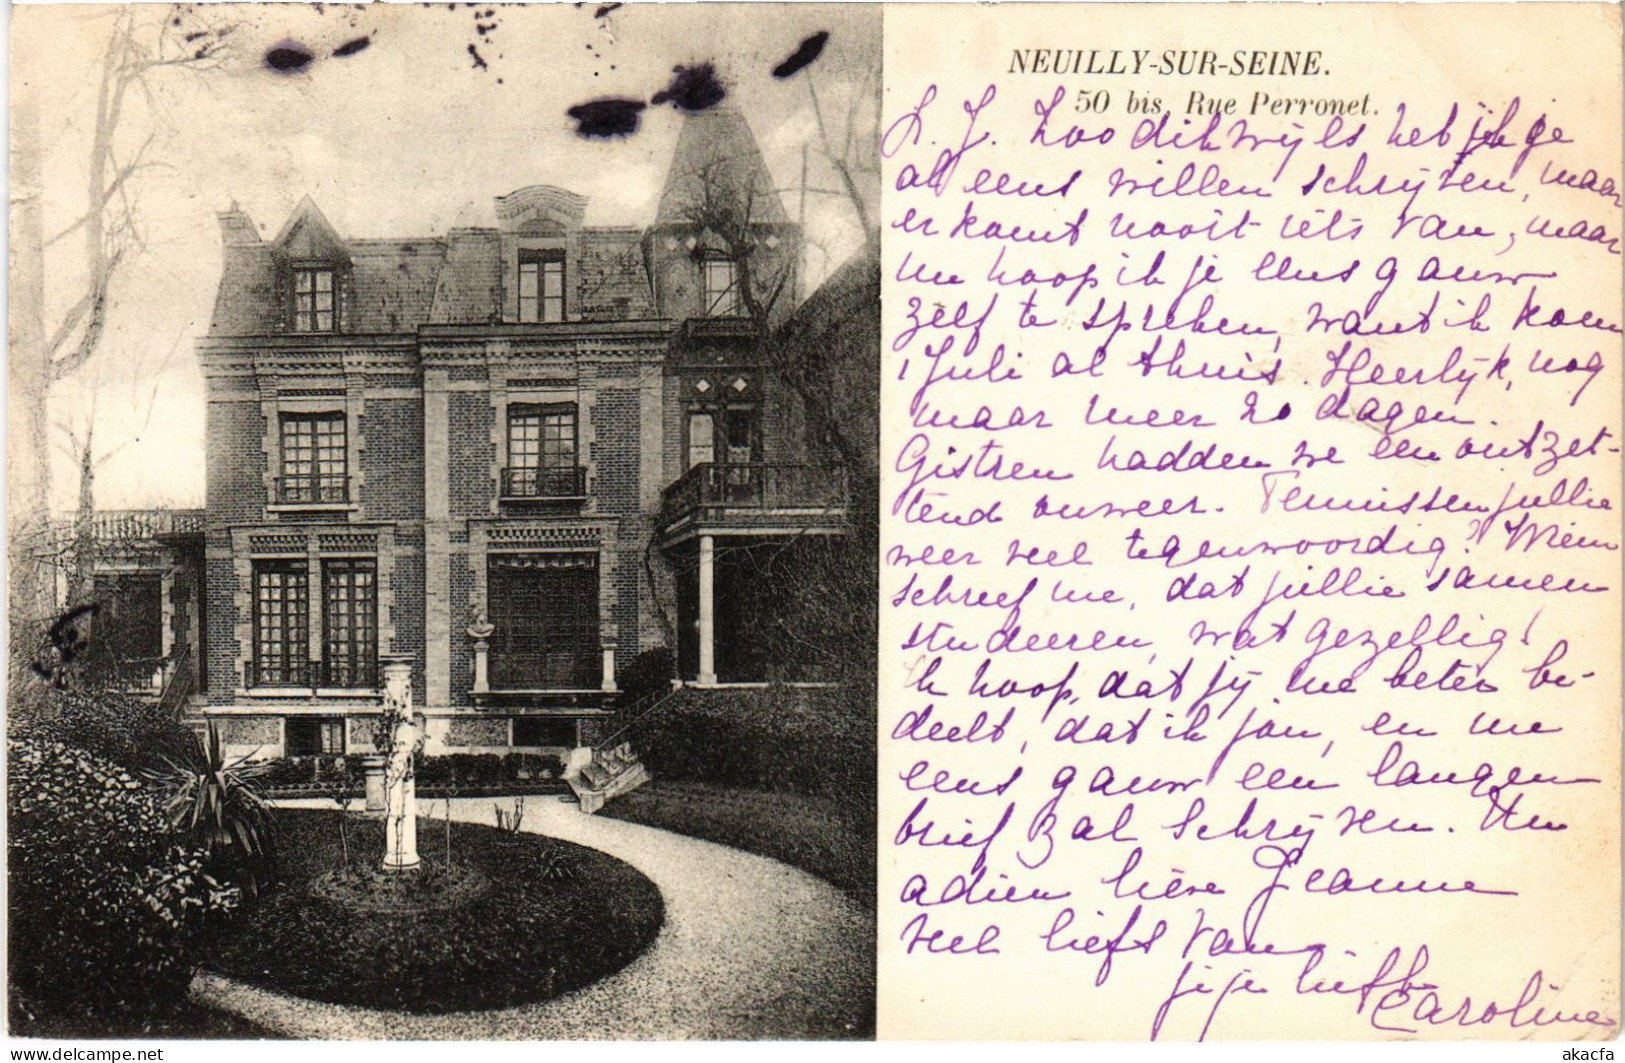 NEUILLY-SUR-SEINE.
50 bis, Rue Perronet.
L. J. Zoo dikwijls heb ik je
al eens willen schrijven, maar
er komt nooit iets van, maar
nu hoop ik je eens gauw
zelf te spreken, want ik kom
1 Juli al thuis. Heerlijk, nog
maar meer 20 dagen.
Gistren hadden we een ontzet-
tend onweer. Tennissen jullie
weer veel tegenwoordig? Wien
schreef me, dat jullie samen
studeeren, wat gezellig!
Ik hoop, dat jij me beter be-
deelt, dat ik jou, en me
eens gauw een langen
brief zal schrijven. Nu
adieu lieve Jeanne
veel liefs van
je je liefh
Caroline
akacfa